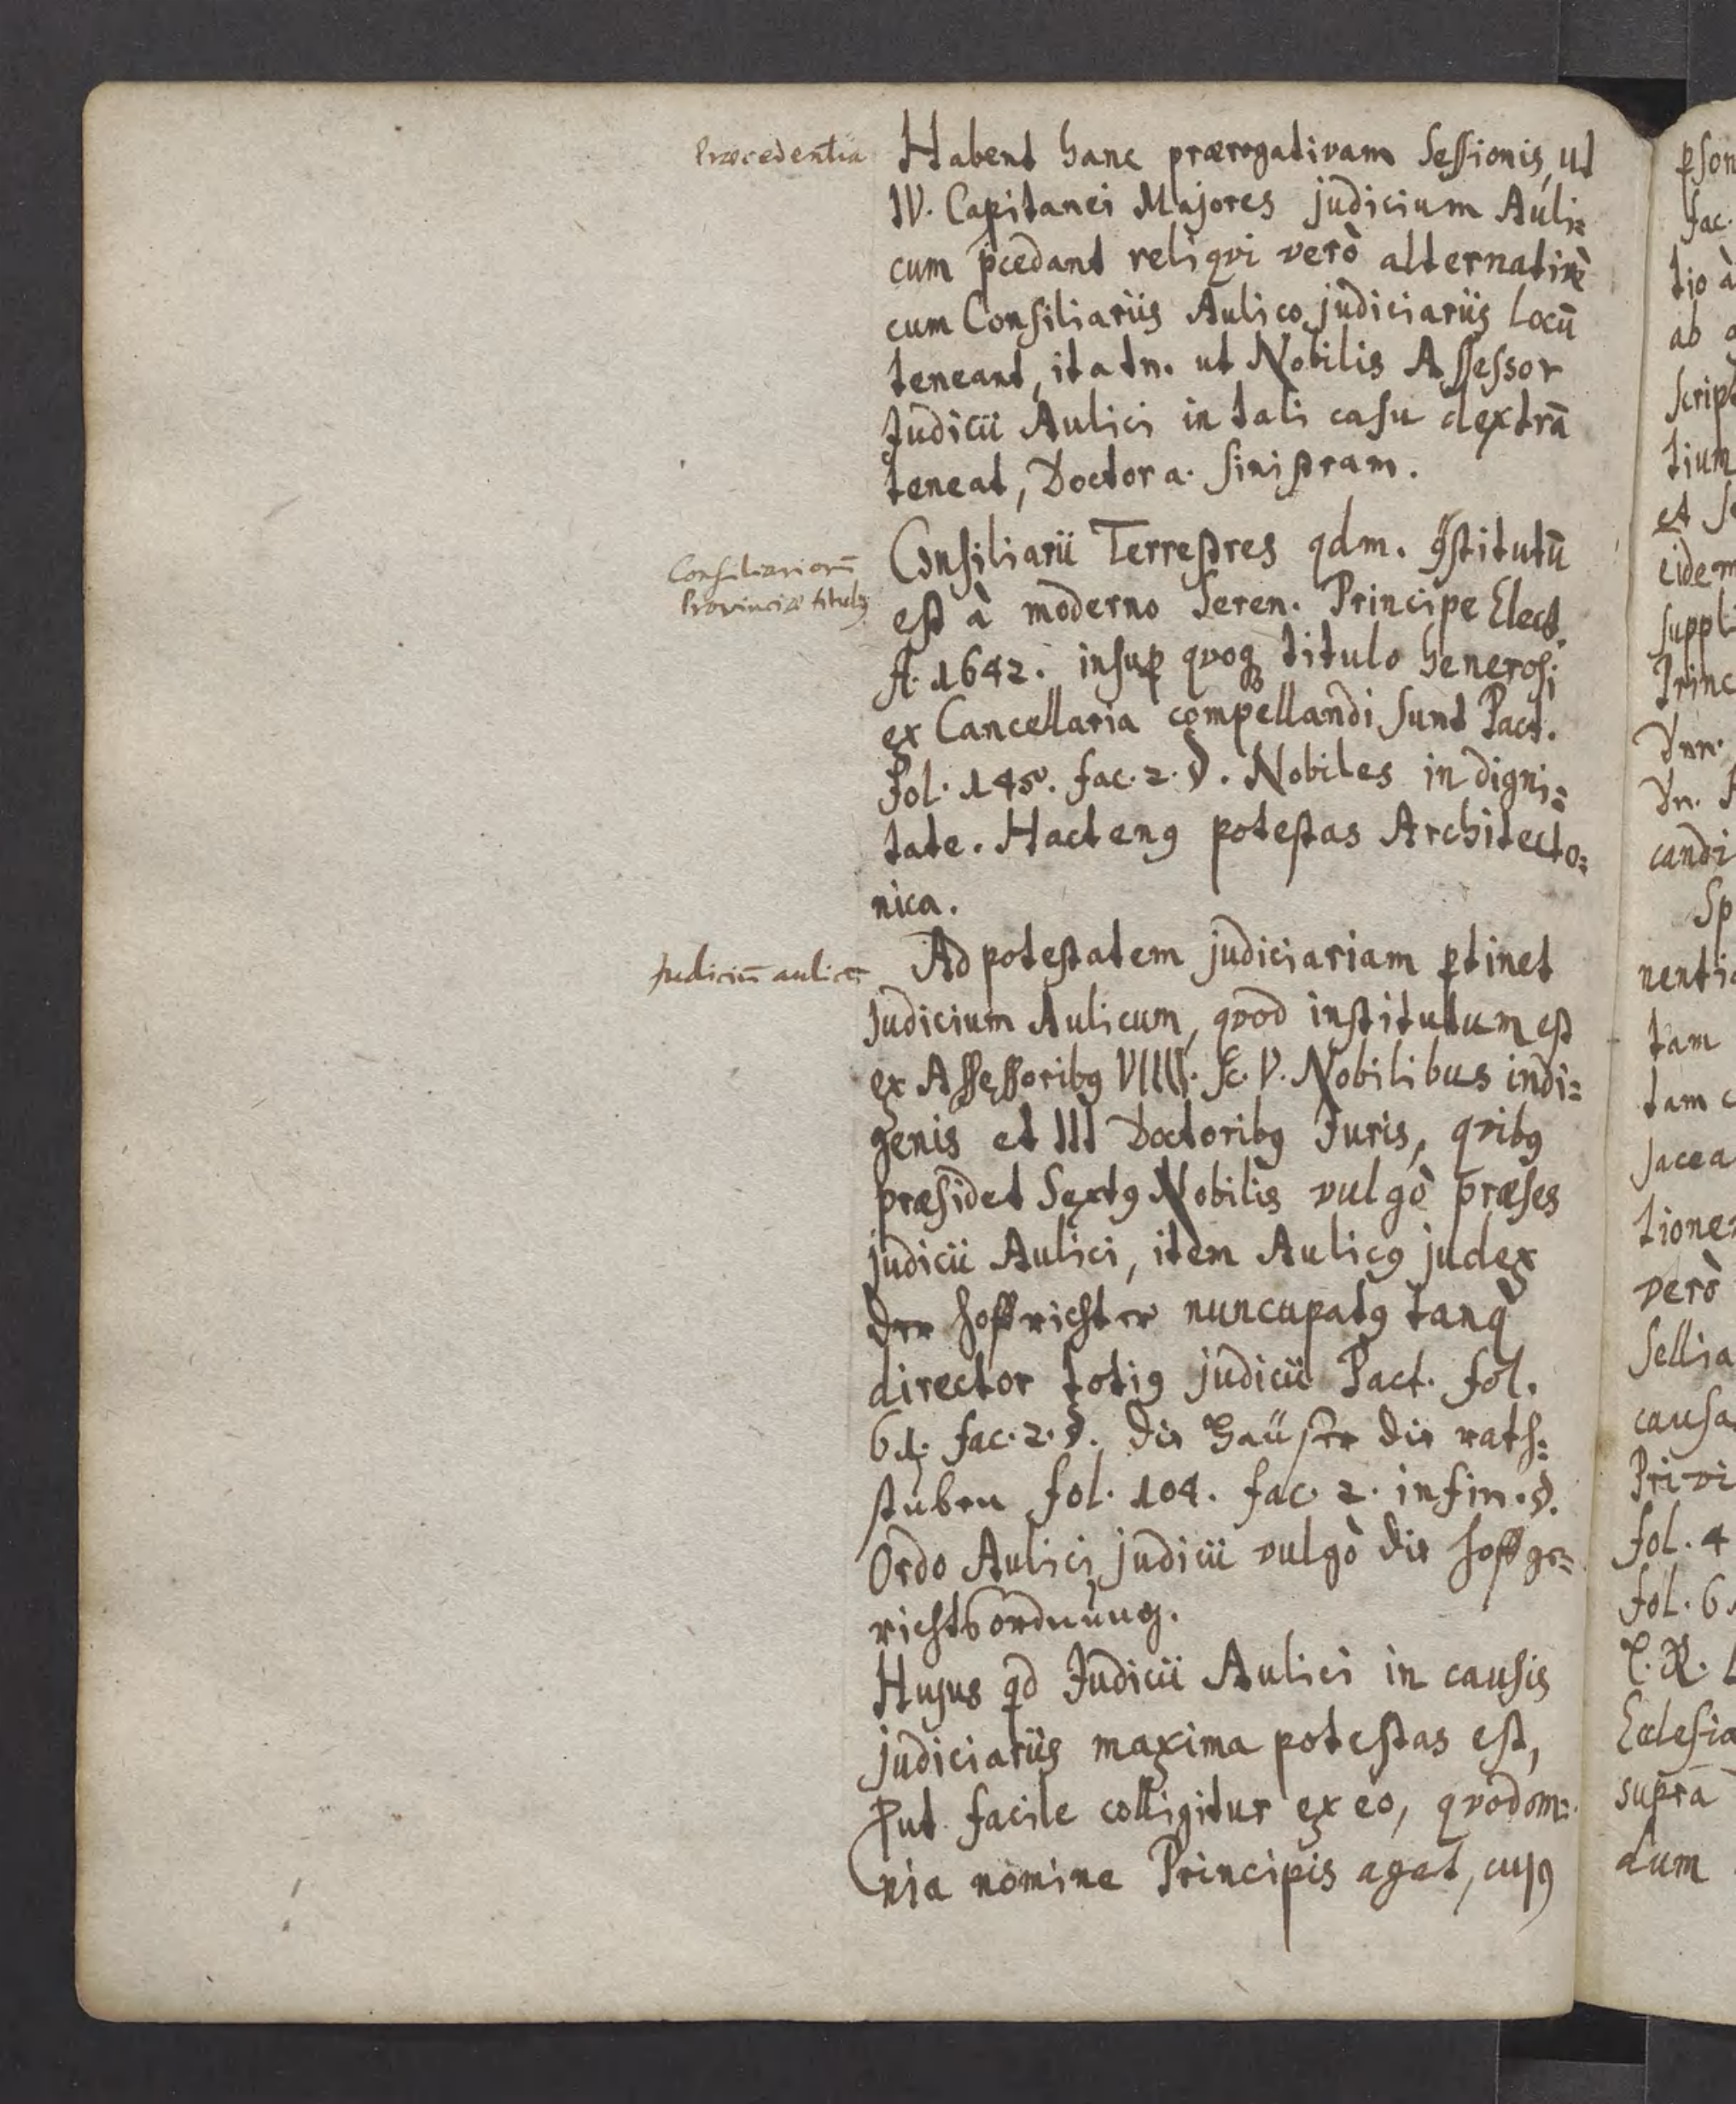 Præcedentia
Habent hanc prærogativam Sessionis, ut
IV. Capitanei Majores judicium Auli=
cum p̄cedant reliqvi verò alternativè
cum Consiliariis Aulico judiciariis Locū
teneant, ita tn. ut Nobilis Assessor
Judicii Aulici in tali casu dextrā
teneat, Doctor a. Sinistram.
Consiliariorū
Provinciæ titulꝯ
Consiliarii Terrestres qdm. ꝯstitutū
est à moderno Seren. Principe Elect.
A. 1642. insuꝑ qvoqꝫ titulo Generosi
ex Cancellaria compellandi sunt Pact.
Fol. 145. fac. 2. §. Nobiles in digni=
tate. Hactenꝯ potestas Architecto=
nica.
Judiciū aulicū
Ad potestatem judiciariam ꝑtinet
Judicium Aulicum, qvod institutum est
ex Assessoribꝯ VIIII. Sc. V. Nobilibus indi=
genis et III Doctoribꝯ Juris, qvibꝯ
præsidet Sextꝯ Nobilis vulgò præses
judicii Aulici, item Aulicꝯ judex
der Hoffrichter nuncupatꝯ tanq̄
director totiꝯ judicii Pact. fol.
61. fac. 2. §. die Häuser die rath=
stuben fol. 104. fac. 2. in fin. §.
Ordo Aulici judicii vulgò die Hoffge=
richtsordnung.
Hujus qd Judicii Aulici in causis
judiciariis maxima potestas est,
ꝓut facile colligitur ex eo, qvod om=
nia nomine Principis agat, cujꝯ
ꝑson
fac.
tio à
ab
script
tium
et
eidem
suppl
Princ
Dnn.
Dn.
candi
Sp
nentia
tam
tam c
jacea
tione
verò
Sellia
causa
Privi
fol. 4
fol. 6
C. R.
Ecclesia
supra
dum